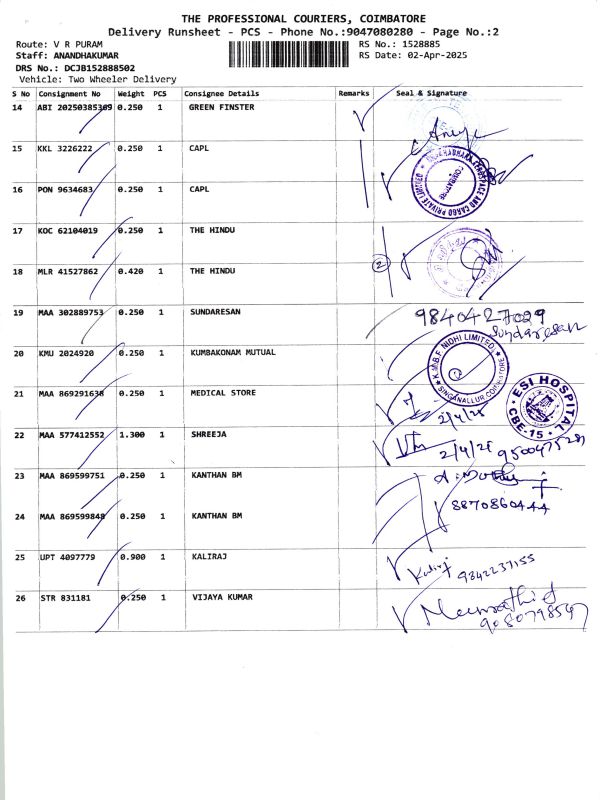 THE PROFESSIONAL COURIERS, COIMBATORE
Delivery Runsheet - PCS - Phone No.:9047080280 - Page No.:2
Route: V R PURAM RS No.: 1528885
Staff: ANANDHAKUMAR RS Date: 02-Apr-2025
DRS No.: DCJB152888502
Vehicle: Two Wheeler Delivery
S No Consignment No Weight PCS Consignee Details Remarks Seal & Signature
14 ABI 20250385309 0.250 1 GREEN FINSTER
15 KKL 3226222 0.250 1 CAPL
16 PON 9634683 0.250 1 CAPL
17 KOC 62104019 0.250 1 THE HINDU
18 MLR 41527862 0.420 1 THE HINDU
2
19 MAA 302889753 0.250 1 SUNDARESAN 9840427029
Sundaresan
20 KMU 2024920 0.250 1 KUMBAKONAM MUTUAL
K.M.B.F. NIDHI LIMITED
SINGANALLUR, COIMBATORE
21 MAA 869291638 0.250 1 MEDICAL STORE
2/4/25
ESI HOSPITAL
CBE-15
22 MAA 577412552 1.300 1 SHREEJA
2/4/25 9500475281
23 MAA 869599751 0.250 1 KANTHAN BM
8870860444
24 MAA 869599848 0.250 1 KANTHAN BM
25 UPT 4097779 0.900 1 KALIRAJ
Kaliraj 9842237155
26 STR 831181 0.250 1 VIJAYA KUMAR
9080798597